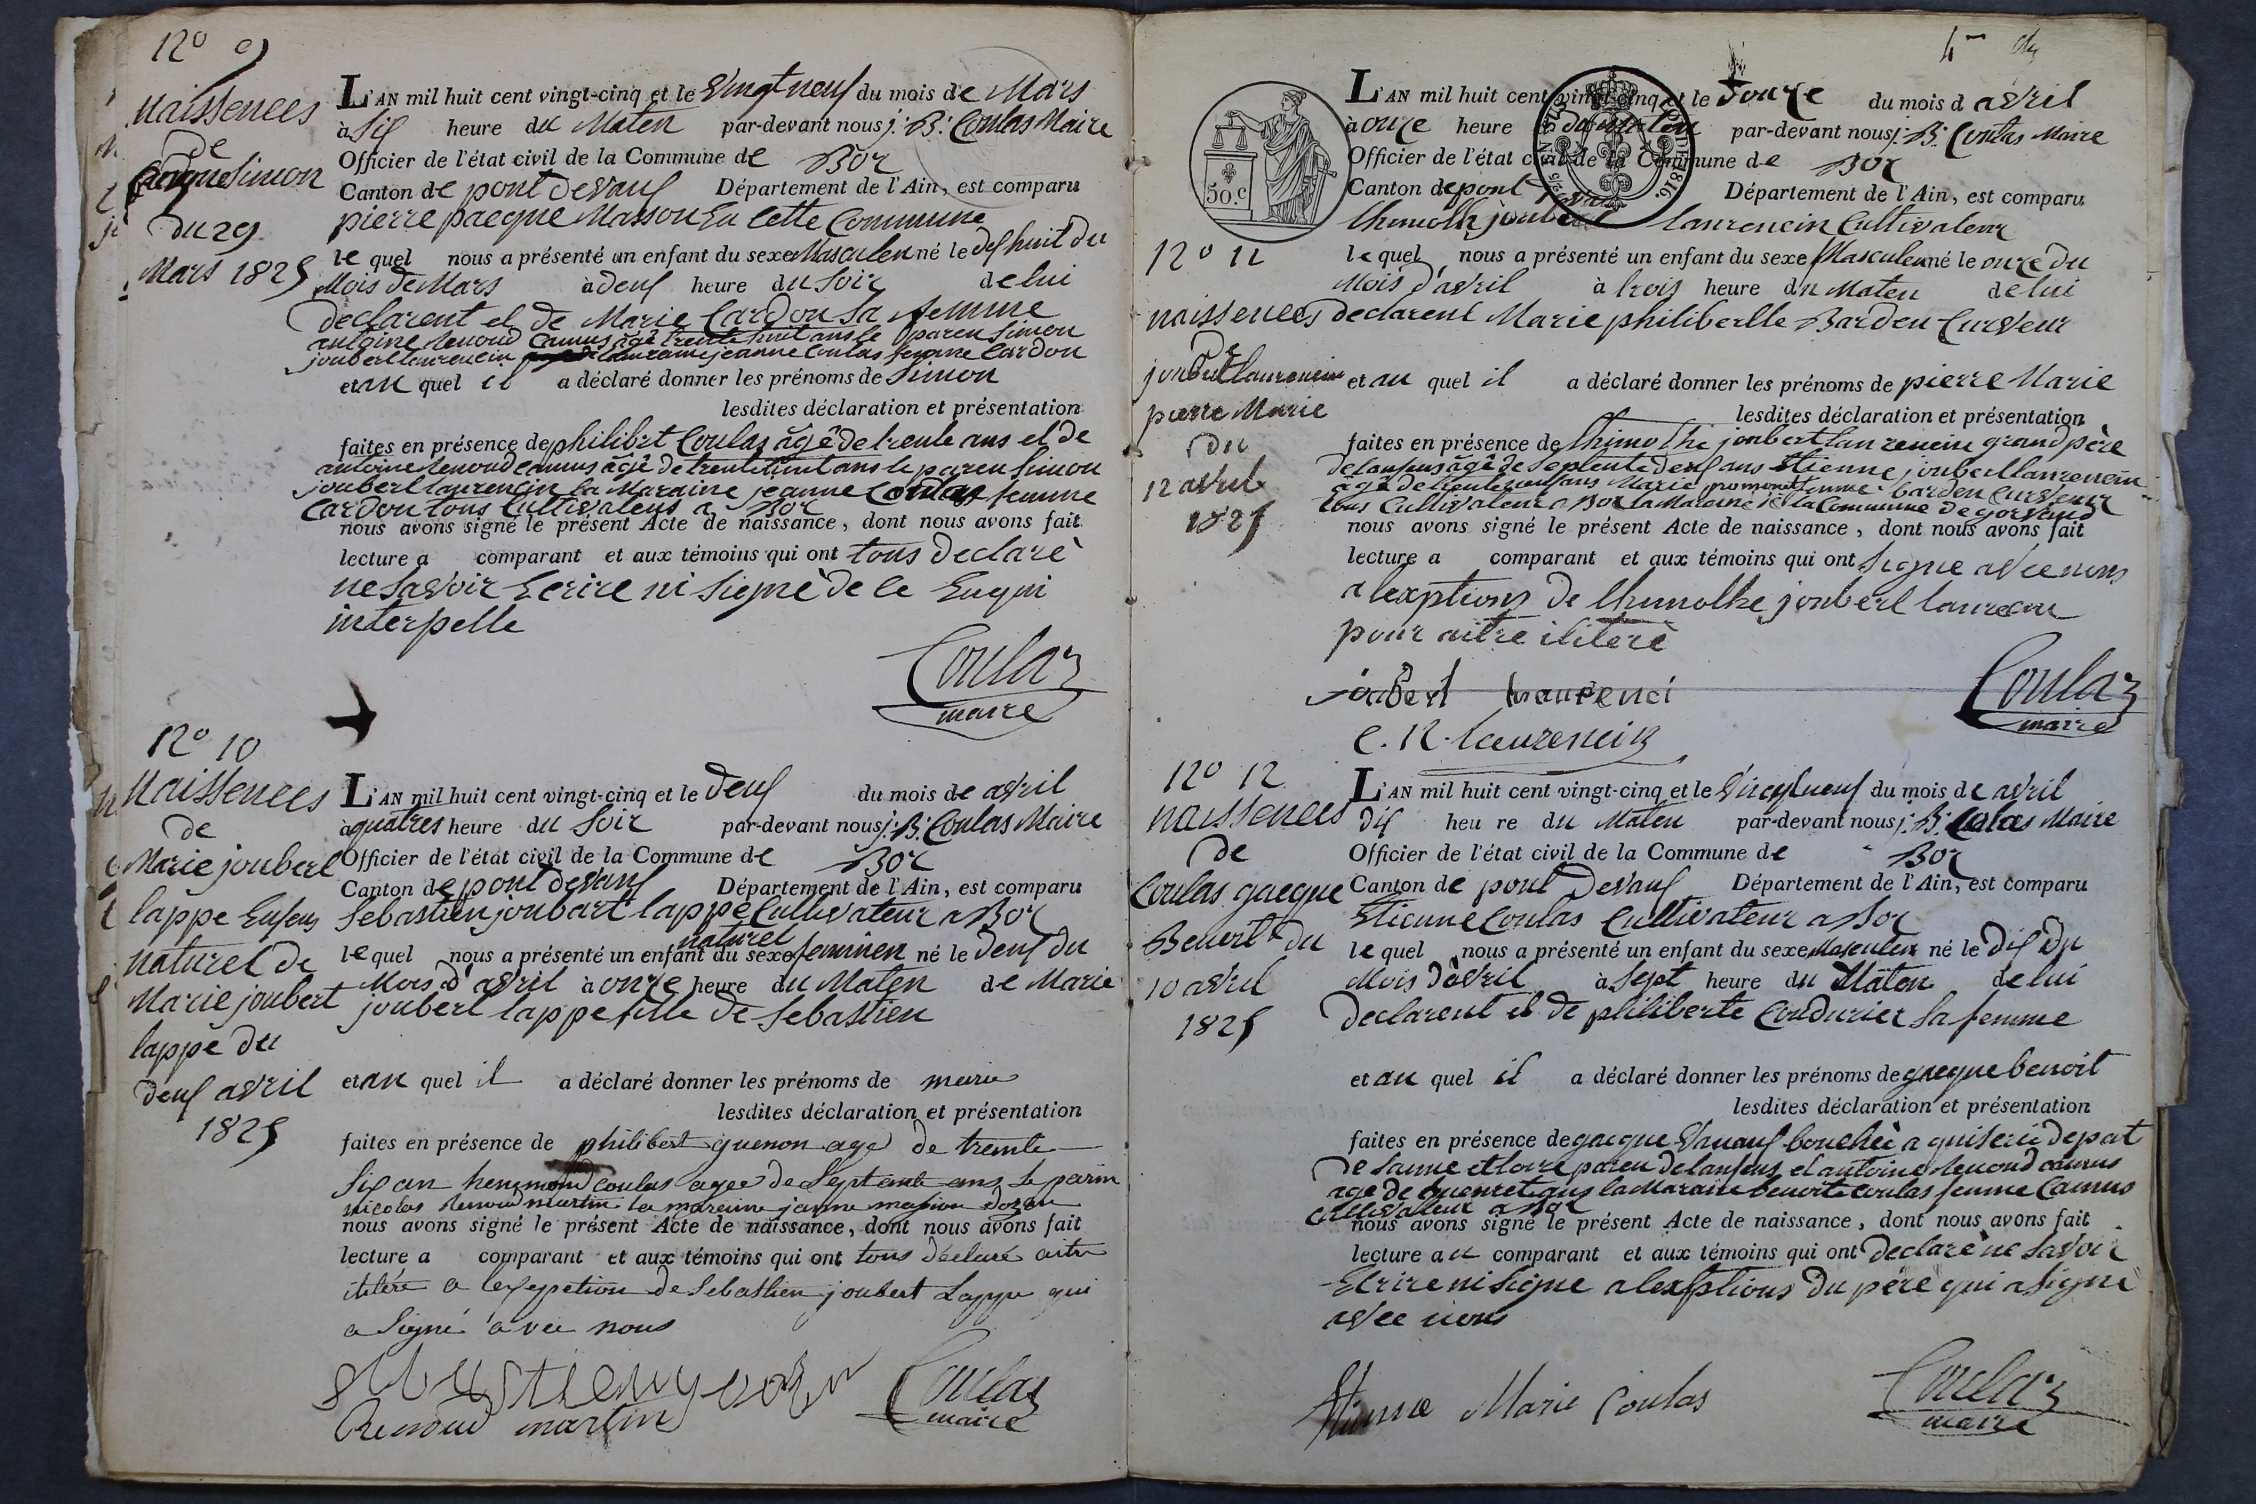 N° 9
Naissences
de
Simon
du 29
Mars 1825
L'AN mil huit cent vingt-cinq et le Vingt neuf du mois de Mars
à Six heure du Maten par-devant nous j: B: Coulas Maire
Officier de l'état civil de la Commune de Boz
Canton de pont devaux Département de l'Ain, est comparu
pierre pacque Masson En Cette Commune
le quel nous a présenté un enfant du sexe Masculen né le dix huit du
Mois de Mars à deux heure du Soir de lui
declarent et de Marie Cardon Sa femme
antoine Renoud Camus âgé trente huit ans le paren Simon
joubert laurencin jeanne Coulas femme Cardon
et au quel il a déclaré donner les prénoms de Simon
lesdites déclaration et présentation
faites en présence de philibet Coulas âgé de trente ans et de
antoine Renoud camus âgé de trente huit ans le paren Simon
joubert laurencin la Maraine jeanne Coulas femme
Cardon tous Cultivateus a Boz
nous avons signé le présent Acte de naissance, dont nous avons fait
lecture a comparant et aux témoins qui ont tous declarè
ne Savoir Ecrire ni Signè de ce Enqui
interpelle
Coulas
maire
N° 10
Naissences
de
Marie joubert
lappe Enfens
naturel de
Marie joubert
lappe du
deux avril
1825
L'AN mil huit cent vingt-cinq et le deux du mois de avril
à quatres heure du Soir par-devant nous j: B: Coulas Maire
Officier de l'état civil de la Commune de Boz
Canton de pont devaux Département de l'Ain, est comparu
Sebastien joubart lappe Cultivateur a Boz
naturel
le quel nous a présenté un enfant du sexe feminen né le deux du
Mois d'avril à onze heure du Maten de Marie
joubert lappe fille de Sebastien
et au quel il a déclaré donner les prénoms de marie
lesdites déclaration et présentation
faites en présence de philibert guenon age de trente
Six an coulas agee de Septante ans Le parin
nicolas Renoud martin la mareine
nous avons signé le présent Acte de naissance, dont nous avons fait
lecture a comparant et aux témoins qui ont tous déclaré aitre
itiléré a lexseption de Sebastien joubert Lappe qui
a Signé avec nous
Renoud martin
Coulas
maire
4me
N° 11
naissences
De
joubert laurencin
pierre Marie
du
12 avril
1825
50.c
1816.
L'AN mil huit cent vingt-cinq et le Douze du mois d avril
à onze heure du maten par-devant nous j: B: Coulas Maire
Officier de l'état civil de la Commune de Boz
Canton de pont devaux Département de l'Ain, est comparu
thimothe joubert laurencin Cultivateur
le quel nous a présenté un enfant du sexe Masculen né le onze du
Mois d'avril à trois heure du Maten de lui
declarent Marie philiberte Barden Curveur
et au quel il a déclaré donner les prénoms de pierre Marie
lesdites déclaration et présentation
faites en présence de thimothe joubert laurencin grand père
de lanfens âgé de Septente deux ans Etienne joubert laurencin
âgé de trente neuf ans Marie femme barden Curveur
tous Cultivateur a Boz la Maraine de la Commune de gorvend
nous avons signé le présent Acte de naissance, dont nous avons fait
lecture a comparant et aux témoins qui ont Signe avec nous
a lexptions de thimothe joubert laurecin
pour aitre ilitere
joubert laurenci
Coulas
maire
laurencin
N° 12
naissences
de
Coulas gacque
Benoit du
10 avril
1825
L'AN mil huit cent vingt-cinq et le Vingt neuf du mois de avril
dix heu re du Maten par-devant nous j: B: Coulas Maire
Officier de l'état civil de la Commune de Boz
Canton de pont devaux Département de l'Ain, est comparu
Etienne Coulas Cultivateur a Boz
le quel nous a présenté un enfant du sexe Masculen né le dix du
Mois d'avril à Sept heure du Maten de lui
declarent et de philiberte Condurier Sa femme
et au quel il a déclaré donner les prénoms de gacque benoit
lesdites déclaration et présentation
faites en présence de gacque bouchèe a depat
de Sanne et loire paren de lanfens et antoine Renoud camus
age de ans la Maraine benoite Coulas femme Camus
Cultivateur a Boz
nous avons signé le présent Acte de naissance, dont nous avons fait
lecture au comparant et aux témoins qui ont declarè ne Savoir
Ecrire ni Signe a lexsptions du pére qui a Signe
avec nous
Etienne Marie Coulas
Coulas
maire